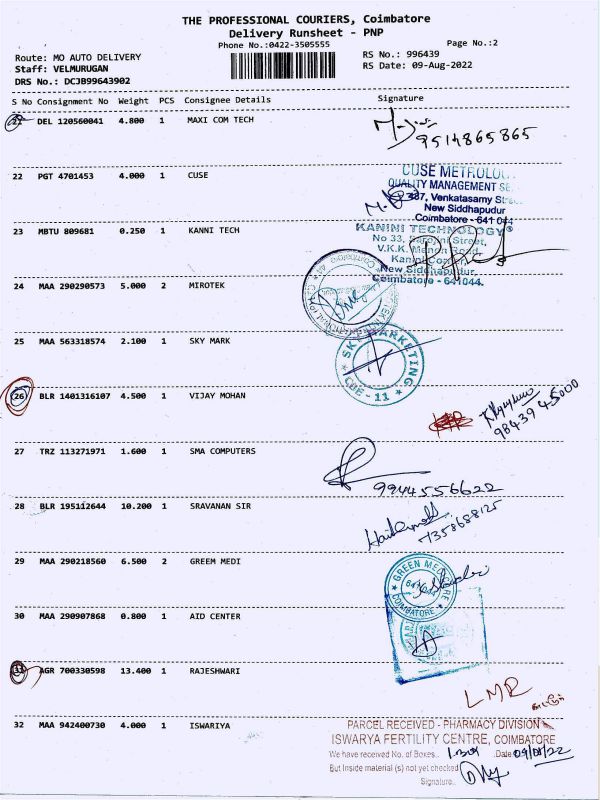 THE PROFESSIONAL COURIERS, Coimbatore
Delivery Runsheet - PNP
Phone No.:0422-3505555
Page No.:2
Route: MO AUTO DELIVERY
Staff: VELMURUGAN
DRS No.: DCJB99643902
RS No.: 996439
RS Date: 09-Aug-2022
S No Consignment No Weight PCS Consignee Details Signature
21 DEL 120560041 4.800 1 MAXI COM TECH
9514865865
22 PGT 4701453 4.000 1 CUSE
CUSE METROLO
QUALITY MANAGEMENT SE
387, Venkatasamy Str
New Siddhapudur
Coimbatore - 641 044
23 MBTU 809681 0.250 1 KANNI TECH
KANINI TECHNOLOGY
No 33, Sarojni Street,
V.K.K. Menon Road,
Kanini Corner,
New Siddhapudur,
Coimbatore - 641044.
24 MAA 290290573 5.000 2 MIROTEK
25 MAA 563318574 2.100 1 SKY MARK
SKY MARKETING
CBE - 11
26 BLR 1401316107 4.500 1 VIJAY MOHAN
98439 45000
27 TRZ 113271971 1.600 1 SMA COMPUTERS
9944556622
28 BLR 195112644 10.200 1 SRAVANAN SIR
7358688125
29 MAA 290218560 6.500 2 GREEM MEDI
GREEN MEDICARE
COIMBATORE
30 MAA 290907868 0.800 1 AID CENTER
31 AGR 700330598 13.400 1 RAJESHWARI
LMR
32 MAA 942400730 4.000 1 ISWARIYA
PARCEL RECEIVED - PHARMACY DIVISION
ISWARYA FERTILITY CENTRE, COIMBATORE
We have received No. of Boxes.. 1 Box .Date 09/08/22
But Inside material (s) not yet checked
Signature..